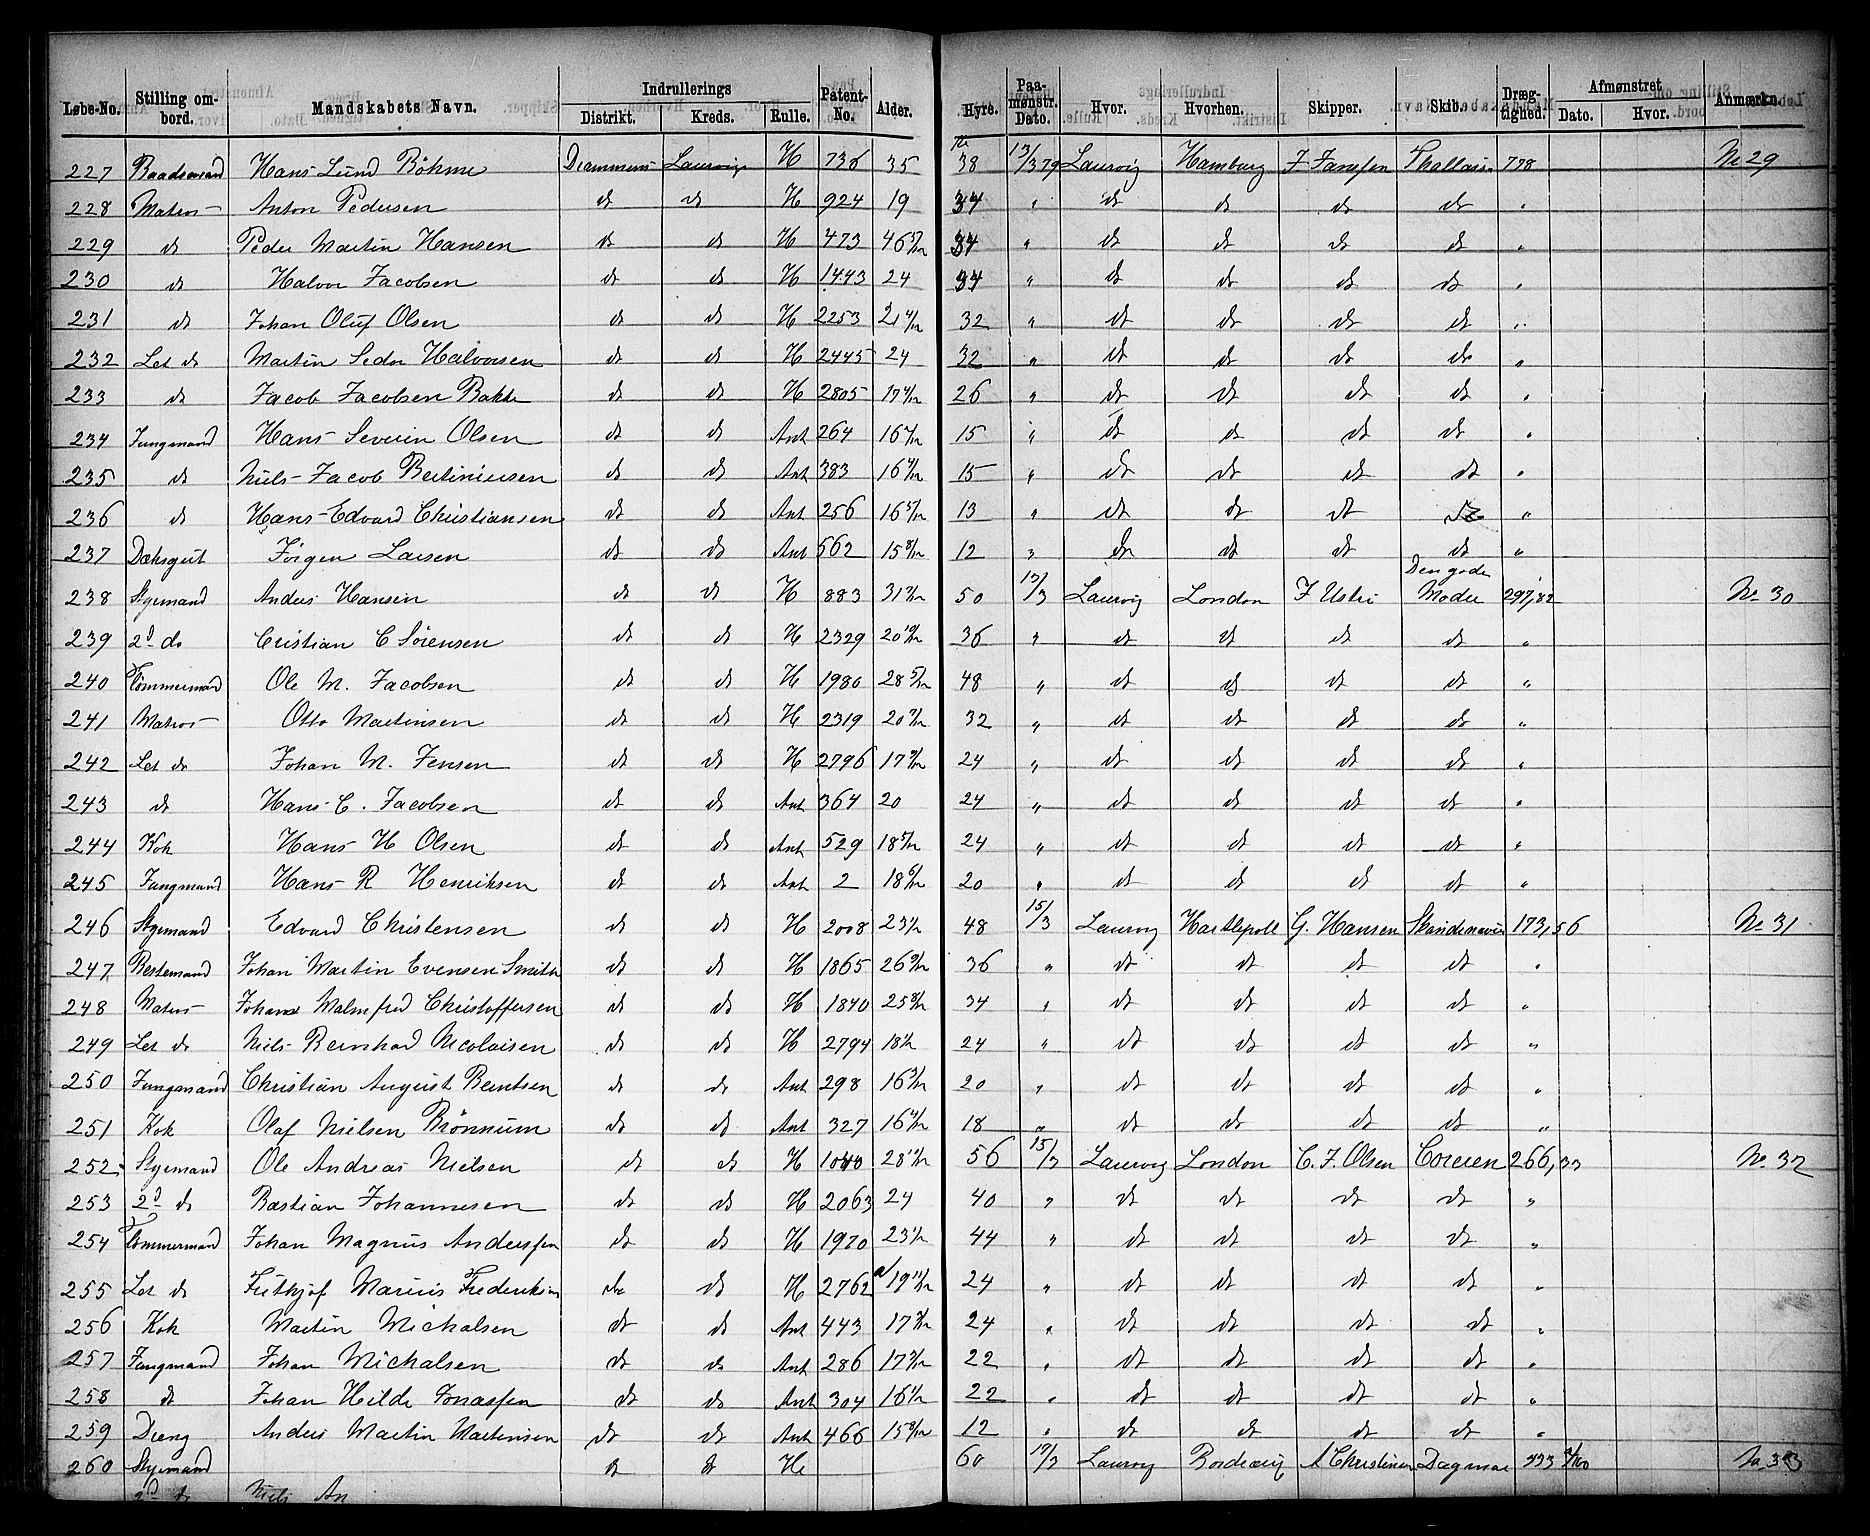 Løbe-No. Stilling ombord. Mandskabets Navn. Indrullerings Distrikt. Kreds. Rulle. Patent-No. Alder. Hyre. Paamønstr. Dato. Hvor. Hvorhen. Skipper. Skib. Drægtighed. Afmønstret Dato. Hvor. Anmærkn.
227 Baadsmand Hans Lund Böhme Drammens Laurvig H 736 35 38 13/3 79 Laurvig Hamburg J Janssen 778 No 29
228 Matros Anton Pedersen do do H 924 19 34 " do do do do "
229 do Peder Martin Hansen do do H 473 46 34 " do do do do "
230 do Halvor Jacobsen do do H 1443 24 34 " do do do do "
231 do Johan Oluf Olsen do do H 2253 21 32 " do do do do "
232 Let do Martin Sedor Halvorsen do do H 2445 24 32 " do do do do "
233 do Jacob Jacobsen Bakke do do H 2805 17 26 " do do do do "
234 Jungmand Hans Severin Olsen do do Ant 264 16 15 " do do do do "
235 do Niels Jacob Bertiniusen do do Ant 383 16 15 " do do do do "
236 do Hans Edvard Christiansen do do Ant 256 16 13 " do do do do "
237 Dæksgut Jörgen Larsen do do Ant 562 15 12 " do do do do "
238 Styrmand Anders Hansen do do H 883 31 50 13/3 Laurvig London J Den gode Moder 297,82 No 30
239 2d do Cristian C Sörensen do do H 2329 20 36 " do do do do "
240 Tömmermand Ole M. Jacobsen do do H 1980 28 48 " do do do do "
241 Matros Otto Martinsen do do H 2319 20 32 " do do do do "
242 Let do Johan M. Jensen do do H 2796 17 24 " do do do do "
243 do Hans C. Jacobsen do do Ant 364 20 24 " do do do do "
244 Kok Hans H Olsen do do Ant 529 18 24 " do do do do "
245 Jungmand Hans R Henriksen do do Ant 2 18 20 " do do do do "
246 Styrmand Edvard Christensen do do H 2008 23 48 15/3 Laurvig Hartlepoll G. Hansen Skandinavien 173,56 No 31
247 Bestemand Johan Martin Evensen Smith do do H 1865 26 36 " do do do do "
248 Matros Johans Malmfred Christoffersen do do H 1840 25 34 " do do do do "
249 Let do Niels Bernhard Nicolaisen do do H 2794 18 24 " do do do do "
250 Jungmand Christian August Berntsen do do Ant 298 16 20 " do do do do "
251 Kok Olaf Nielsen Brönnum do do Ant 327 16 18 " do do do do "
252 Styrmand Ole Andreas Nielsen do do H 28 56 15/3 Laurvig London C. J. Olsen 266,33 No 32
253 2d do Bastian Johannesen do do H 2063 24 40 " do do do do "
254 Tömmermand Johan Magnus Anderssen do do H 1970 23 44 " do do do do "
255 Let do Frithjof Marius Frederiksen do do H 2762 19 24 " do do do do "
256 Kok Martin Michalsen do do Ant 443 17 24 " do do do do "
257 Jungmand Johan Michalsen do do Ant 286 17 22 " do do do do "
258 do Johan Hilde Jonassen do do Ant 304 16 22 " do do do do "
259 Dreng Anders Martin Martinsen do do Ant 466 15 12 " do do do do "
260 Styrmand do do H 60 17/3 Laurvig Bordeaux A Christensen Dagmar No 33
2d do Niels An